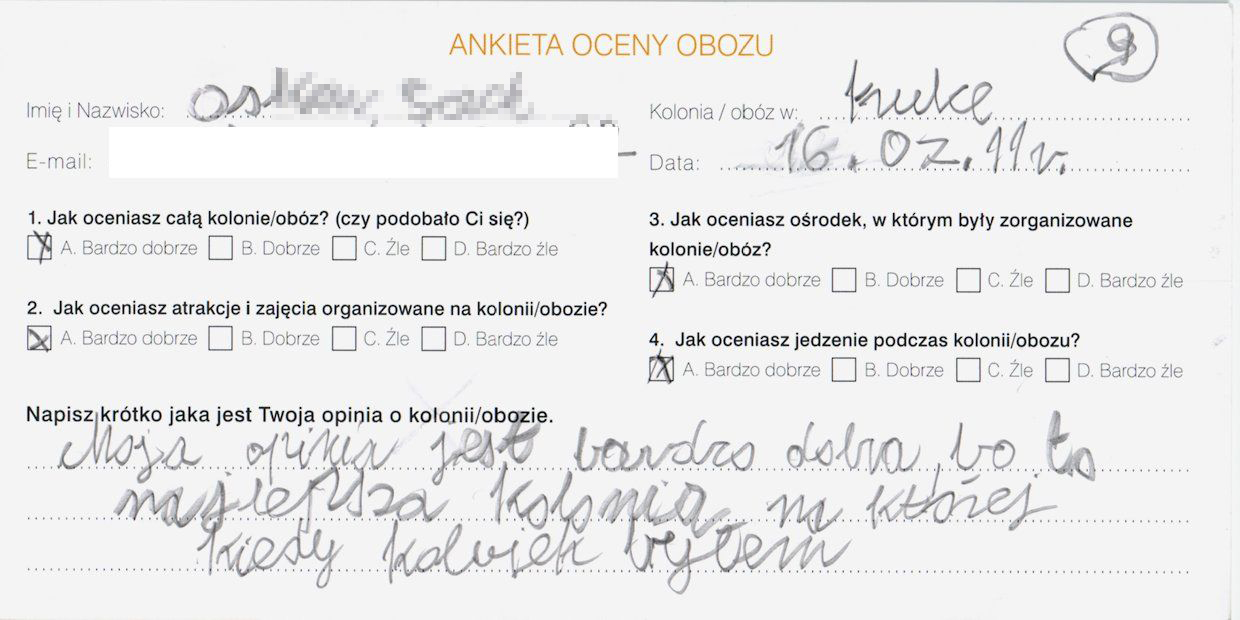 ANKIETA OCENY OBOZU
9
Imię i Nazwisko:
Kolonia / obóz w:
E-mail:
Data: 16.07.11r.
1. Jak oceniasz całą kolonie/obóz? (czy podobało Ci się?)
A. Bardzo dobrze B. Dobrze C. Źle D. Bardzo źle
2. Jak oceniasz atrakcje i zajęcia organizowane na kolonii/obozie?
A. Bardzo dobrze B. Dobrze C. Źle D. Bardzo źle
3. Jak oceniasz ośrodek, w którym były zorganizowane
kolonie/obóz?
A. Bardzo dobrze B. Dobrze C. Źle D. Bardzo źle
4. Jak oceniasz jedzenie podczas kolonii/obozu?
A. Bardzo dobrze B. Dobrze C. Źle D. Bardzo źle
Napisz krótko jaka jest Twoja opinia o kolonii/obozie.
Moja opinia jest bardzo dobra, bo to
najlepsza kolonia, na której
kiedy kolwiek byłem